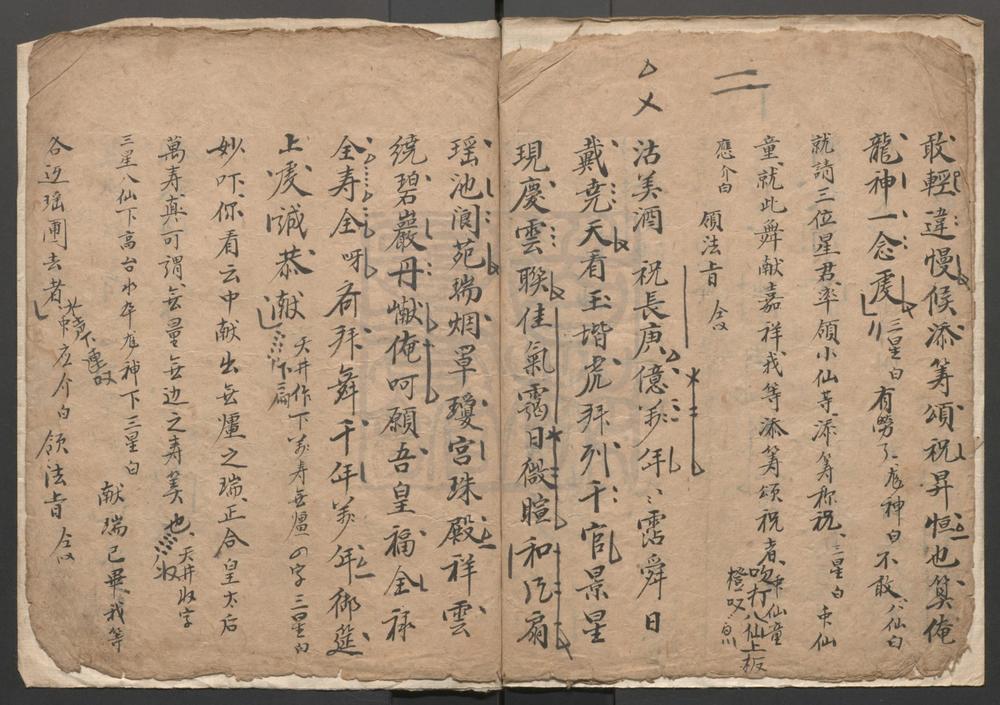 敢輕違慢候添筹頌祝昇恒也算俺
龍神一念虔 三星白 有勞了 龙神白 不敢 八仙白
就請三位星君率領小仙等添筹称祝 三星白 衆仙
童就此舞献嘉祥我等添筹頌祝者 衆仙童
吹打八仙上板
橙
應介白 領法旨 仝
二
沽美酒 祝長庚億萬年〻霑舜日
戴尭天看玉堦虎拜列千官景星
現慶雲聯佳氣靄日微暄和风扇
瑶池阆苑瑞烟罩瓊宫珠殿祥雲
繞碧巖丹巘俺呵願吾皇福全禄
全寿全呀齐拜舞千年萬年御筵
上虔誠恭献 下扇 天井作下萬寿無疆四字 三星白
妙吓你看云中献出無疆之瑞正合皇太后
萬寿真可謂無量無边之寿筭也 收 天井收字
三星八仙下高台水卒龙神下 三星白 献瑞已畢我等
各迈瑶圃去者 衆应介白 領法旨 仝